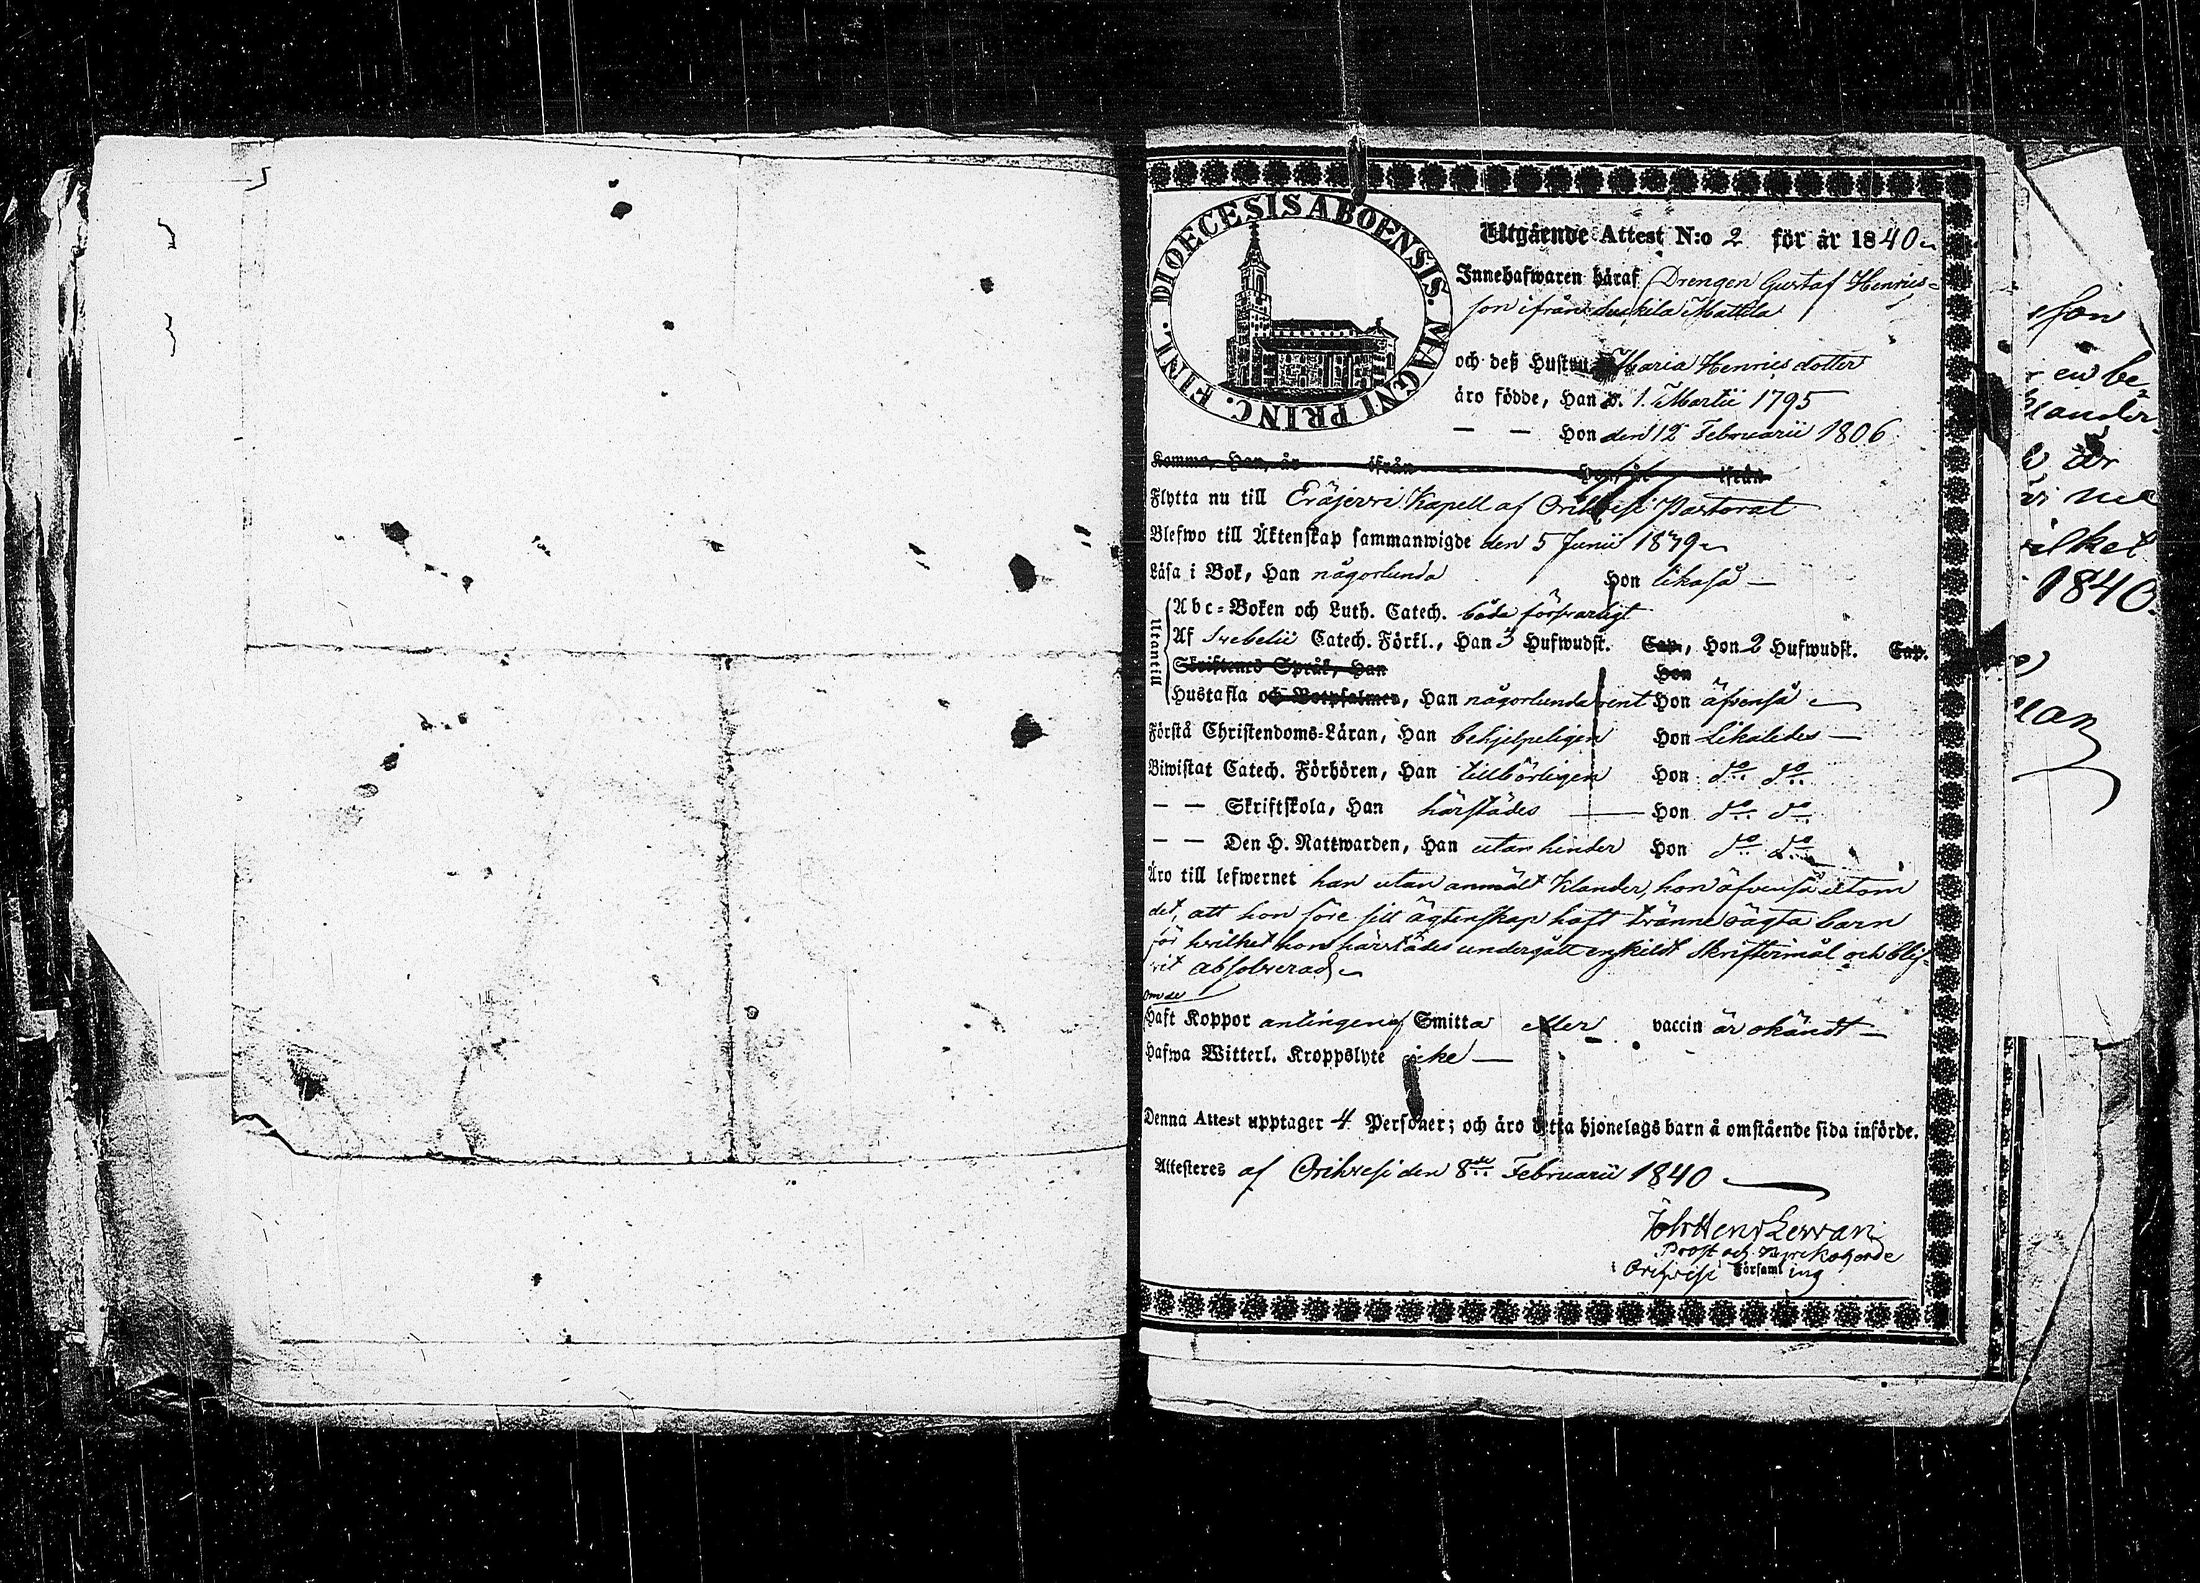 DIOECESIS ABOENSIS. MAGNI PRINC. FINL.
Utgående Attest N:o 2 för år 1840
Innehafwaren häraf Drengen Gustaf Henrics=
son ifrån Mattila
och deß Hustru Maria Henricsdotter
äro födde, Han d. 1. Martii 1795
— — Hon den 12 Februarii 1806
Komme, Han, år ifrån Hon, år ifrån
Flytta nu till Eräjervi Kapell af Orihvesi Pastorat
Blefwo till Äktenskap sammanwigde den 5 Junii
Läsa i Bok, Han någorlunda Hon likaså —
Utantill
Abc=Boken och Luth. Catech. båda försvarligt
Af Svebelii Catech. Förkl., Han 3 Hufwudst. Cap., Hon 2 Hufwudst. Cap.
Skriftenes Språk, Han Hon
Hustafla och Botpsalmer, Han någorlunda rent Hon äfvenså
Förstå Christendoms=Läran, Han behjelpeligen Hon Likaledes —
Biwistat Catech. Förhören, Han tillbörligen Hon do do
— — Skriftskola, Han härstädes — Hon do do
— — Den H. Nattwarden, Han utan hinder Hon do do
Äro till lefwernet han utan anmält klander, hon äfvenså utom
det, att hon före sitt ägtenskap haft tvänne oägta barn
för hvilket hon härstädes undergått enskildt skriftermål och blif-
vit absolverad
om de
Haft Koppor antingen af Smitta eller vaccin är okändt —
Hafwa Witterl. Kroppslyte icke —
Denna Attest upptager 4 Personer; och äro detta hjonelags barn å omstående sida införde.
Attesteres af Orihvesi den 8de Februarii 1840
Joh Henr
Prost och Kyrkoherde
i Orihvesi Församling
son
en be=
klander
är
ne
vilket
1840.